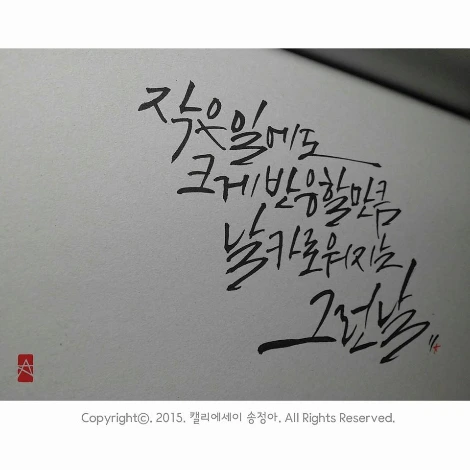 작은일에도
크게 반응할만큼
날카로워지는
그런날
Copyright©. 2015. 캘리에세이 송정아. All Rights Reserved.